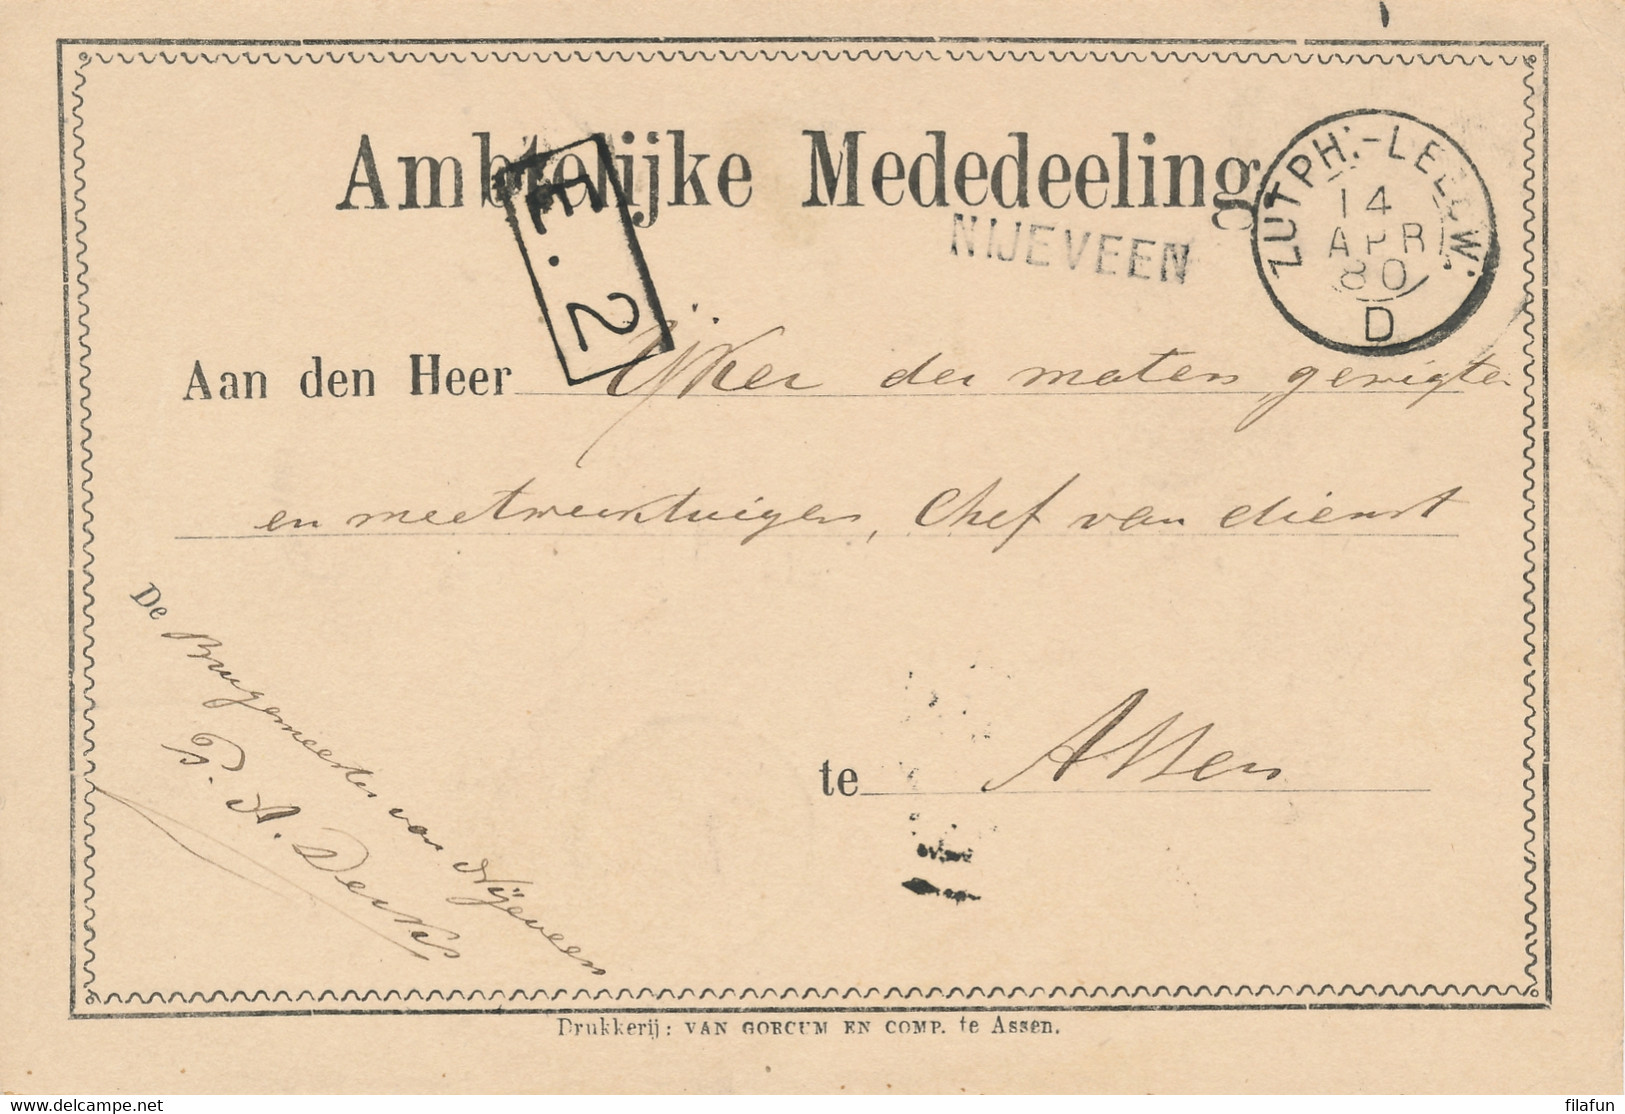 Ambtelijke Mededeeling
E. 2
NIJEVEEN
ZUTPH:-LEEUW:
14
APR
80
D
Aan den Heer IJker der maten, gewigten
en meetwerktuigen, Chef van dienst
te Assen
De Burgemeester van Nijeveen
P. A. Derks
Drukkerij: VAN GORCUM EN COMP. te Assen.
www.delcampe.net
filafun